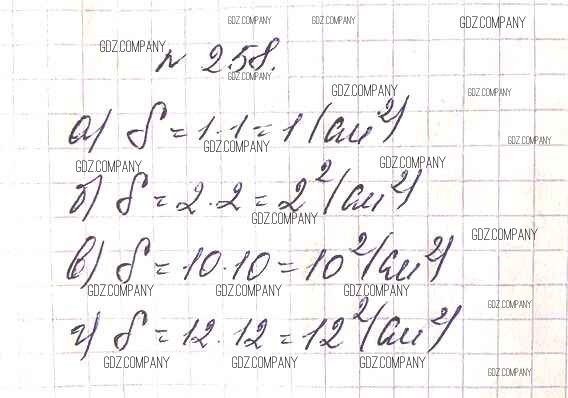 GDZ.COMPANY GDZ.COMPANY GDZ.COMPANY
GDZ.COMPANY
№ 258.
GDZ.COMPANY
GDZ.COMPANY GDZ.COMPANY
а) S = 1 · 1 = 1 (см²)
GDZ.COMPANY GDZ.COMPANY
GDZ.COMPANY GDZ.COMPANY
б) S = 2 · 2 = 2² (см²)
GDZ.COMPANY GDZ.COMPANY
в) S = 10 · 10 = 10² (см²)
GDZ.COMPANY GDZ.COMPANY GDZ.COMPANY GDZ.COMPANY
г) S = 12 · 12 = 12² (см²)
GDZ.COMPANY GDZ.COMPANY GDZ.COMPANY GDZ.COMPANY